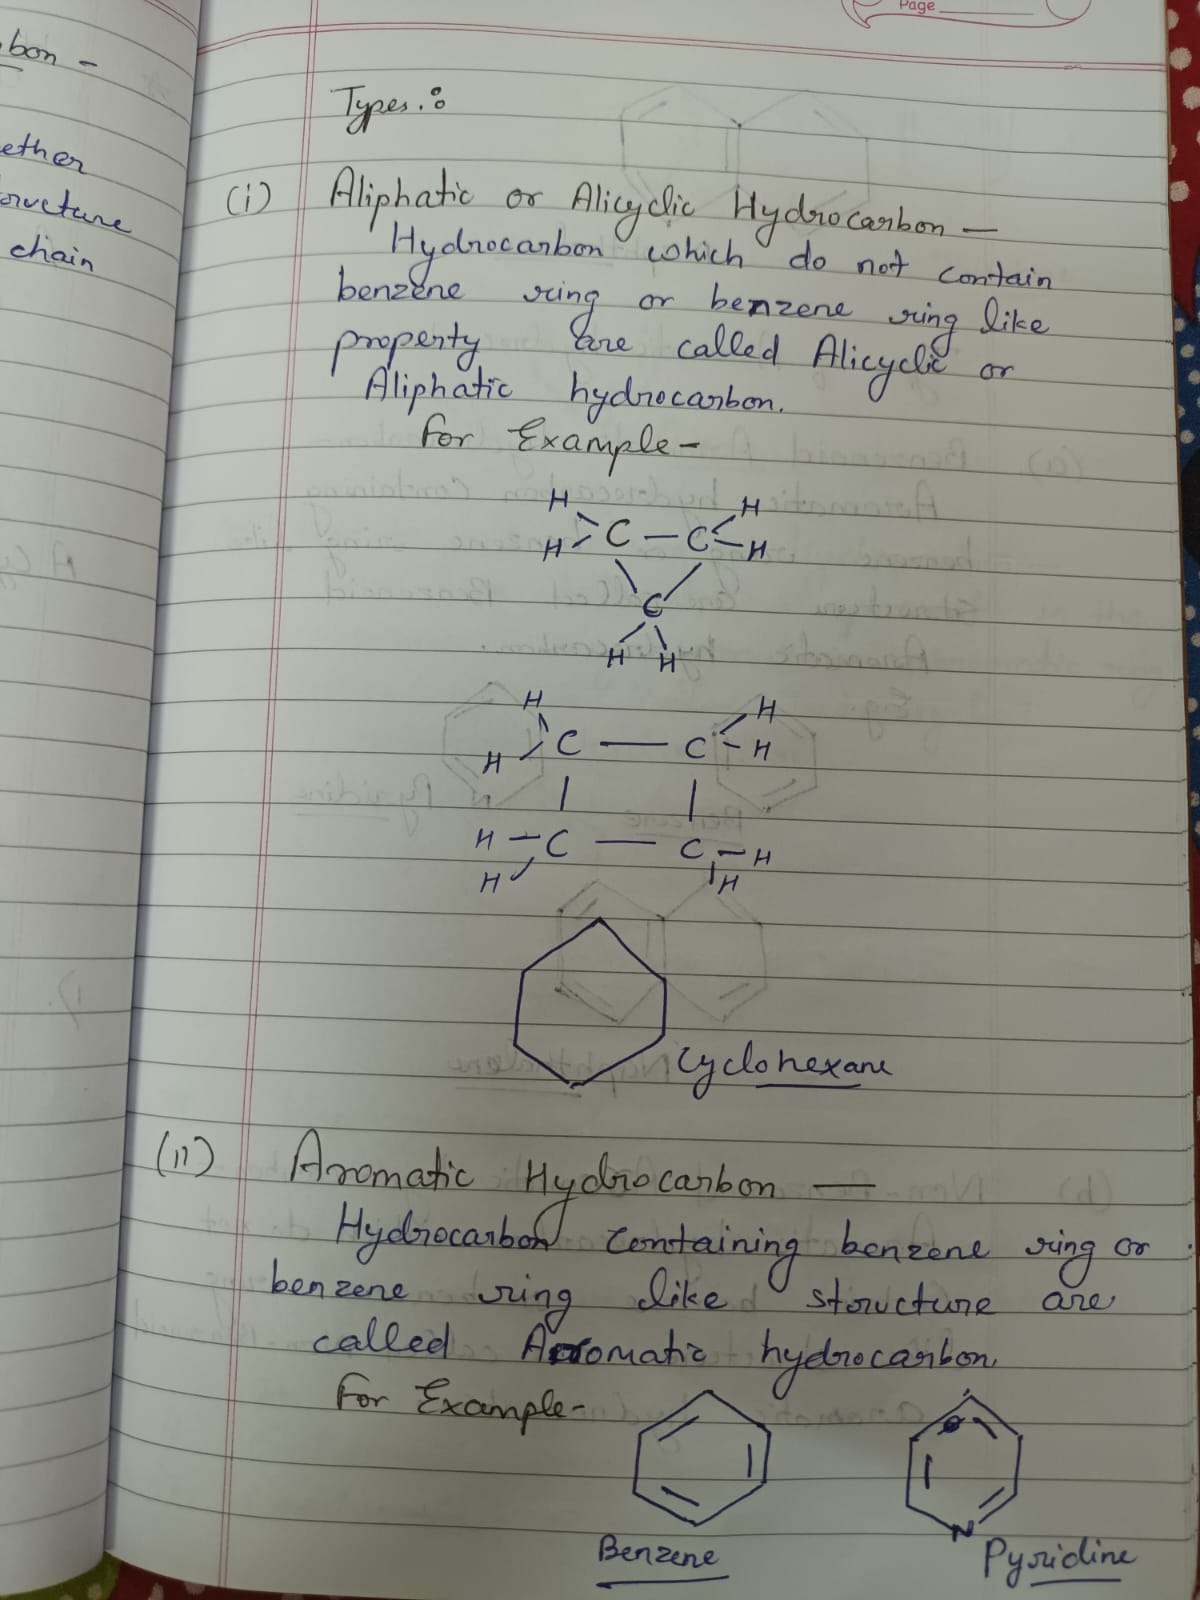 Page
bon -
ether
structure
chain
Types :
(i) Aliphatic or Alicyclic Hydrocarbon —
Hydrocarbon which do not contain
benzene ring or benzene ring like
property are called Alicyclic or
Aliphatic hydrocarbon.
For Example -
H H
H C — C H
C
H H
H H
H C — C - H
H - C — C - H
H H
Cyclohexane
(ii) Aromatic Hydrocarbon —
Hydrocarbon containing benzene ring or
benzene ring like structure are
called Aromatic hydrocarbon.
For Example -
N
Benzene Pyridine